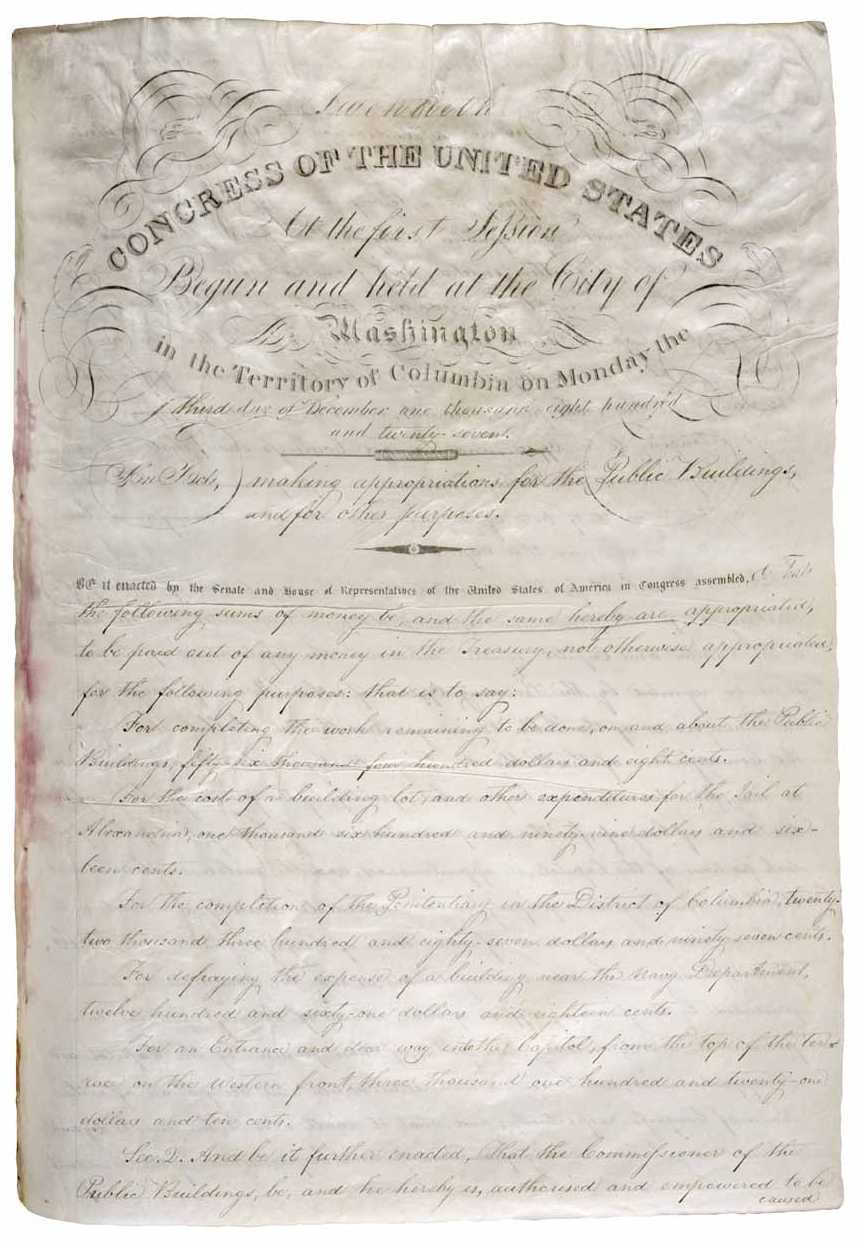 Twentieth
CONGRESS OF THE UNITED STATES
At the first Session
Begun and held at the City of
Washington
in the Territory of Columbia on Monday the
third day of December one thousand eight hundred
and twenty-seven.
An Act, making appropriations for the Public Buildings,
and for other purposes.
BE it enacted by the Senate and House of Representatives of the United States of America in Congress assembled, That
the following sums of money be, and the same hereby are appropriated,
to be paid out of any money in the Treasury, not otherwise appropriated,
for the following purposes: that is to say:
For completing the work remaining to be done, on and about the Public
Buildings, fifty six thousand four hundred dollars and eight cents.
For the cost of a building lot, and other expenditures for the Jail at
Alexandria, one thousand six hundred and ninety-nine dollars and six-
teen cents.
For the completion of the Penitentiary in the District of Columbia, twenty-
two thousand three hundred and eighty-seven dollars and ninety seven cents.
For defraying the expense of a building near the Navy Department,
twelve hundred and sixty-one dollars and eighteen cents.
For an Entrance and door way into the Capitol, from the top of the ter-
race on the Western front, three thousand one hundred and twenty-one
dollars and ten cents.
Sec. 2. And be it further enacted, That the Commissioner of the
Public Buildings, be, and he hereby is, authorised and empowered to be
caused